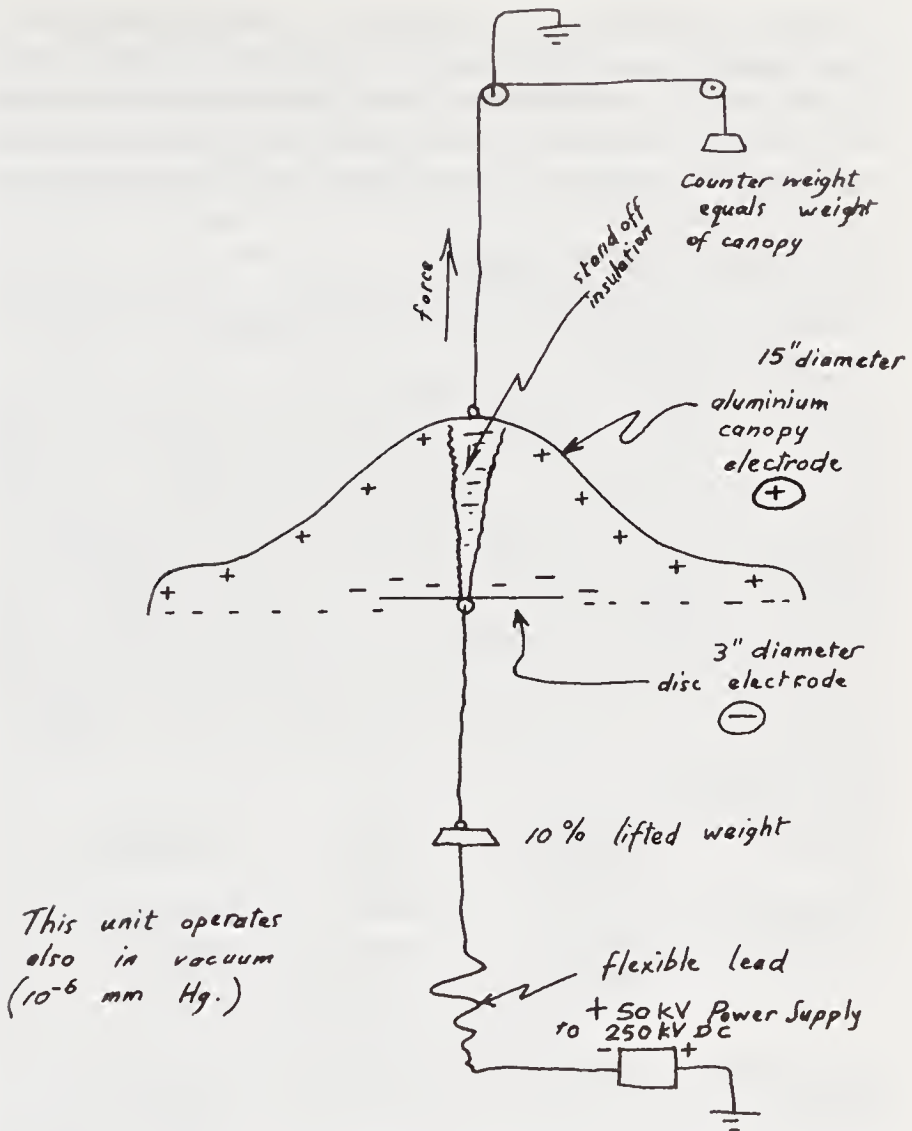 Counter weight
equals weight
of canopy
stand off
insulation
force
15" diameter
aluminium
canopy
electrode
+
+
+
+
+
+
+
+
+
+
+
3" diameter
disc electrode
−
10% lifted weight
This unit operates
also in vacuum
(10⁻⁶ mm Hg.)
flexible lead
+ 50 kV Power Supply
to 250 kV DC
− +